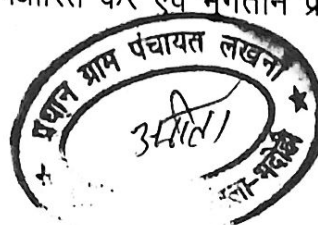 कर एवं भुगतान
प्रधान ग्राम पंचायत लखनो
ला-भदोही